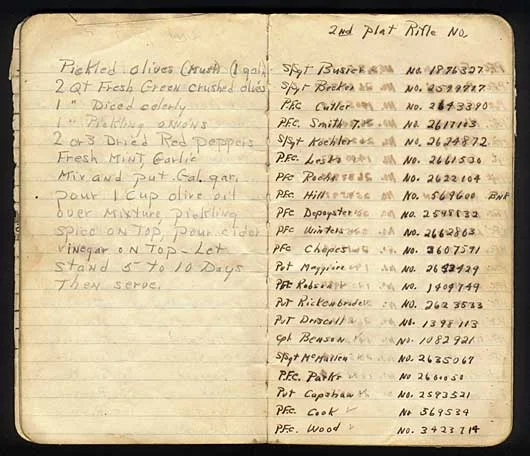 Pickled olives (Mush) (1 gal)
2 QT Fresh Green crushed olives
1 " Diced celerly
1 " Pickling onions
2 or 3 Dried Red peppers
Fresh Mint, Garlic
Mix and put Gal. gar.
pour 1 Cup olive oil
over Mixture, pickling
spice on Top, pour cider
vinegar on Top - Let
stand 5 to 10 Days
Then serve.
2nd plat Rifle No.
S/Sgt No. 1896327
S/Sgt No.
Pfc Cutler No. 2643390
Pfc. Smith No.
S/Sgt Koehler No. 2624872
Pfc. No. 2661530
Pfc No. 2622104
Pfc. Hill No. 569600
Pfc Depoyster No. 2598832
Pfc Winters No. 2662863
Pfc No. 3607591
Pvt Magwire No.
Pfc Robson No. 1404749
Pvt No. 2623533
Pvt Driscoll No. 1398113
Cpl Benson No. 1082921
S/Sgt McMullen No. 2635069
P.F.C. Parks No 2660050
Pvt Capshaw No. 2593521
Pfc. Cook No 569534
Pfc. Wood No. 3423714